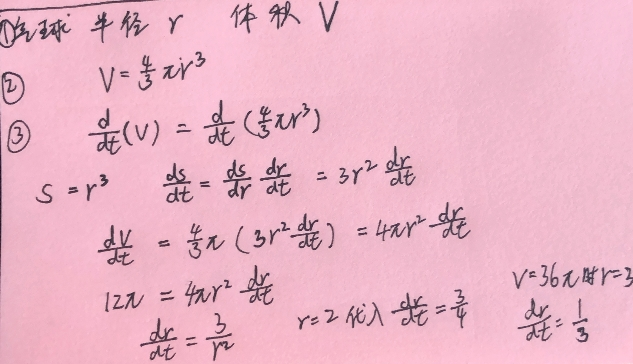 ①气球 半径 r 体积 V
② V = 4/3 πr³
③ d/dt (V) = d/dt (4/3 πr³)
S = r³ ds/dt = ds/dr dr/dt = 3r² dr/dt
dV/dt = 4/3 π (3r² dr/dt) = 4πr² dr/dt
12π = 4πr² dr/dt
dr/dt = 3/r²
r=2 代入 dr/dt = 3/4
V=36π时r=3
dr/dt = 1/3